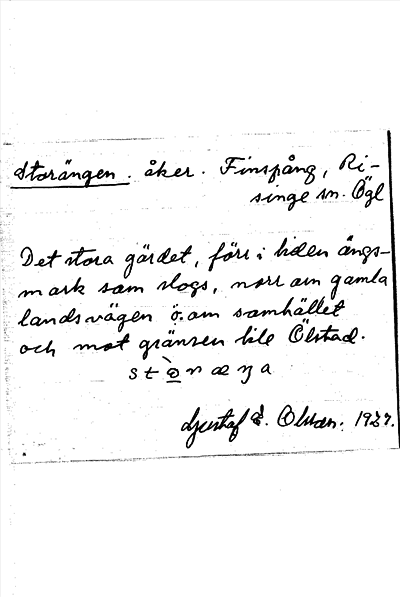 Storängen. åker. Finspång, Ri-
singe sn. Ögl
Det stora gärdet, förr i tiden ängs-
mark som slogs, norr om gamla
landsvägen ö. om samhället
och mot gränsen till Ölstad.
stò̲ræŋa
Gustaf E. Olsson. 1927.